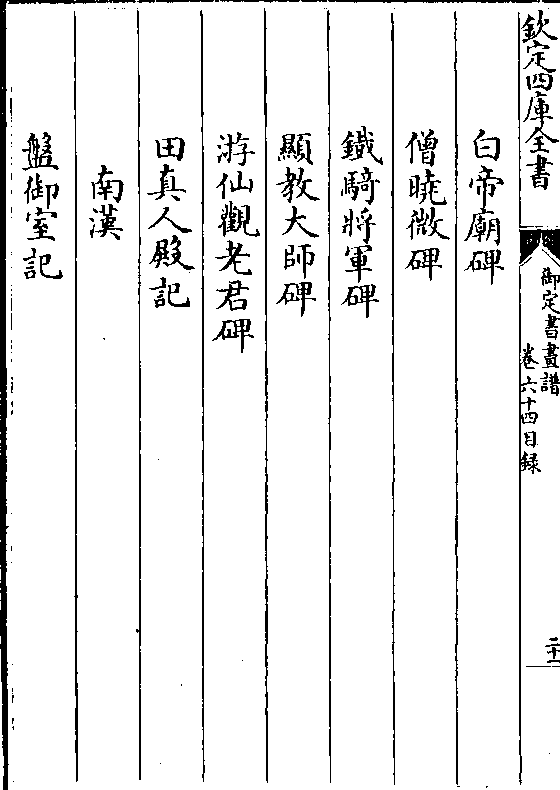 欽定四庫全書
御定書畫譜
卷六十四目録
二十一
白帝廟碑
僧曉微碑
鐵騎將軍碑
顯教大師碑
游仙觀老君碑
田真人殿記
南漢
盤御室記